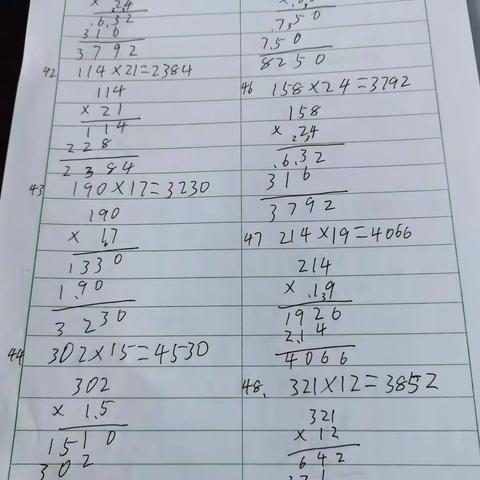 × 24
632
316
3792
42 114×21=2384
114
× 21
114
228
2384
43 190×17=3230
190
× 17
1330
190
3230
44 302×15=4530
302
× 15
1510
302
750
750
8250
46 158×24=3792
158
× 24
632
316
3792
47 214×19=4066
214
× 19
1926
214
4066
48. 321×12=3852
321
× 12
642